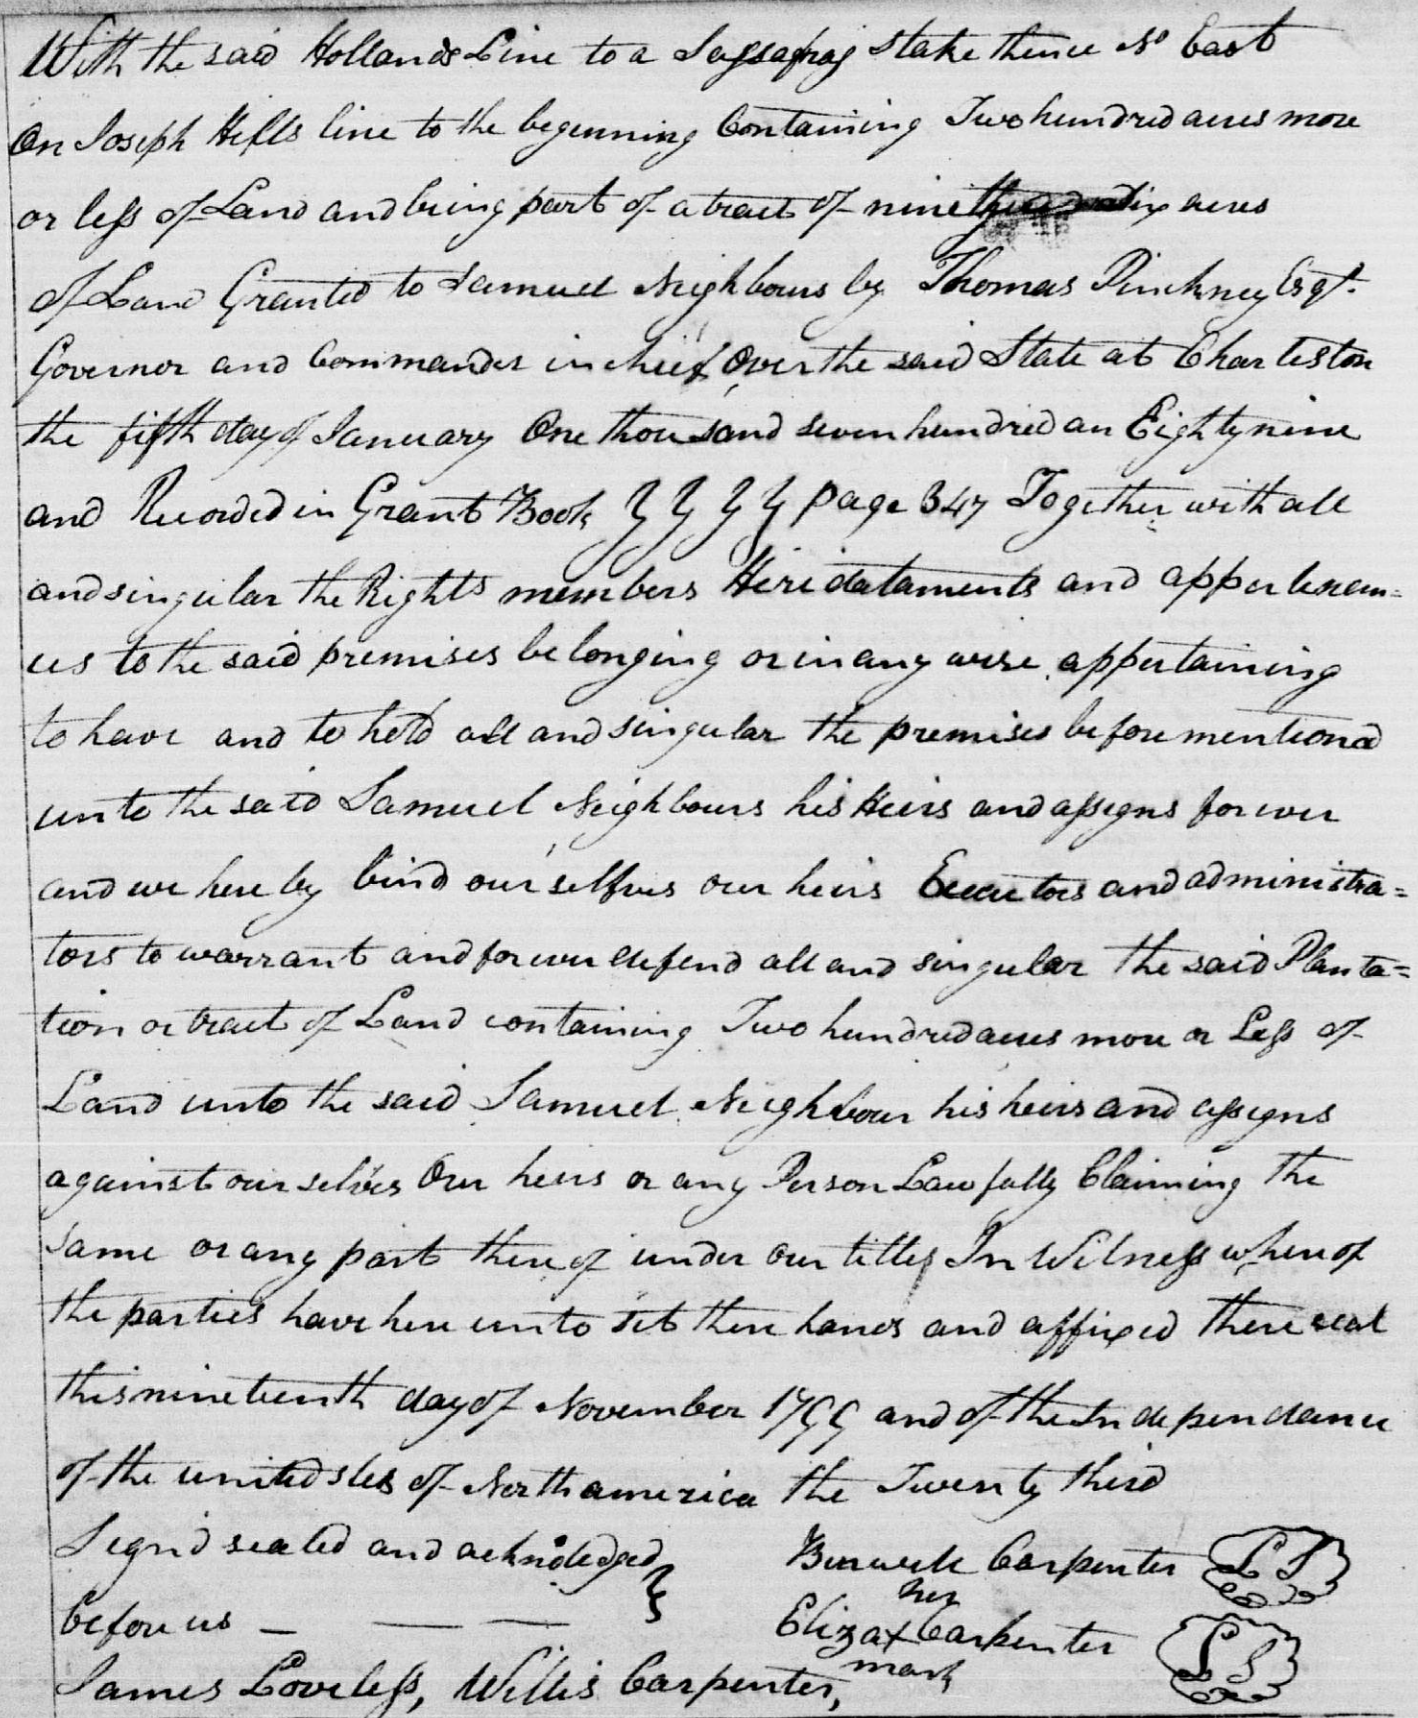 With the said Hollands Line to a Sassafras stake thence No East
On Joseph Hills line to the beginning Containing Two hundred acres more
or less of Land and being part of a tract of nine acres
of Land Granted to Samuel Neighbours by Thomas Pinckney Esqr.
Governor and Commander in chief Over the said State at Charleston
the fifth day of January One thousand seven hundred an Eighty nine
and Recorded in Grant Book Y Y Y Y page 347 Together with all
and singular the Rights members Heridataments and appertenan=
ces to the said premises belonging or in any wise appertaining
to have and to hold all and singular the premises before mentiond
unto the said Samuel Neighbours his Heirs and assigns forever
and we here by bind our selfves our heirs Executors and administra=
tors to warrant and forever defend all and singular the said Planta=
tion or tract of Land containing Two hundred acres more or Less of
Land unto the said Samuel Neighbour his heirs and assigns
against our selves Our heirs or any Person Lawfully Claiming the
same or any part there of under our titles In Witness where of
the parties have here unto set there hands and affixed there seal
this nineteenth day of November 1799 and of the Independance
of the united stes of North america the Twenty third
Signd sealed and acknoledged Berwick Carpenter L S
before us — — — her
Eliza x Carpenter L S
mark
James Loveless, Willis Carpenter,